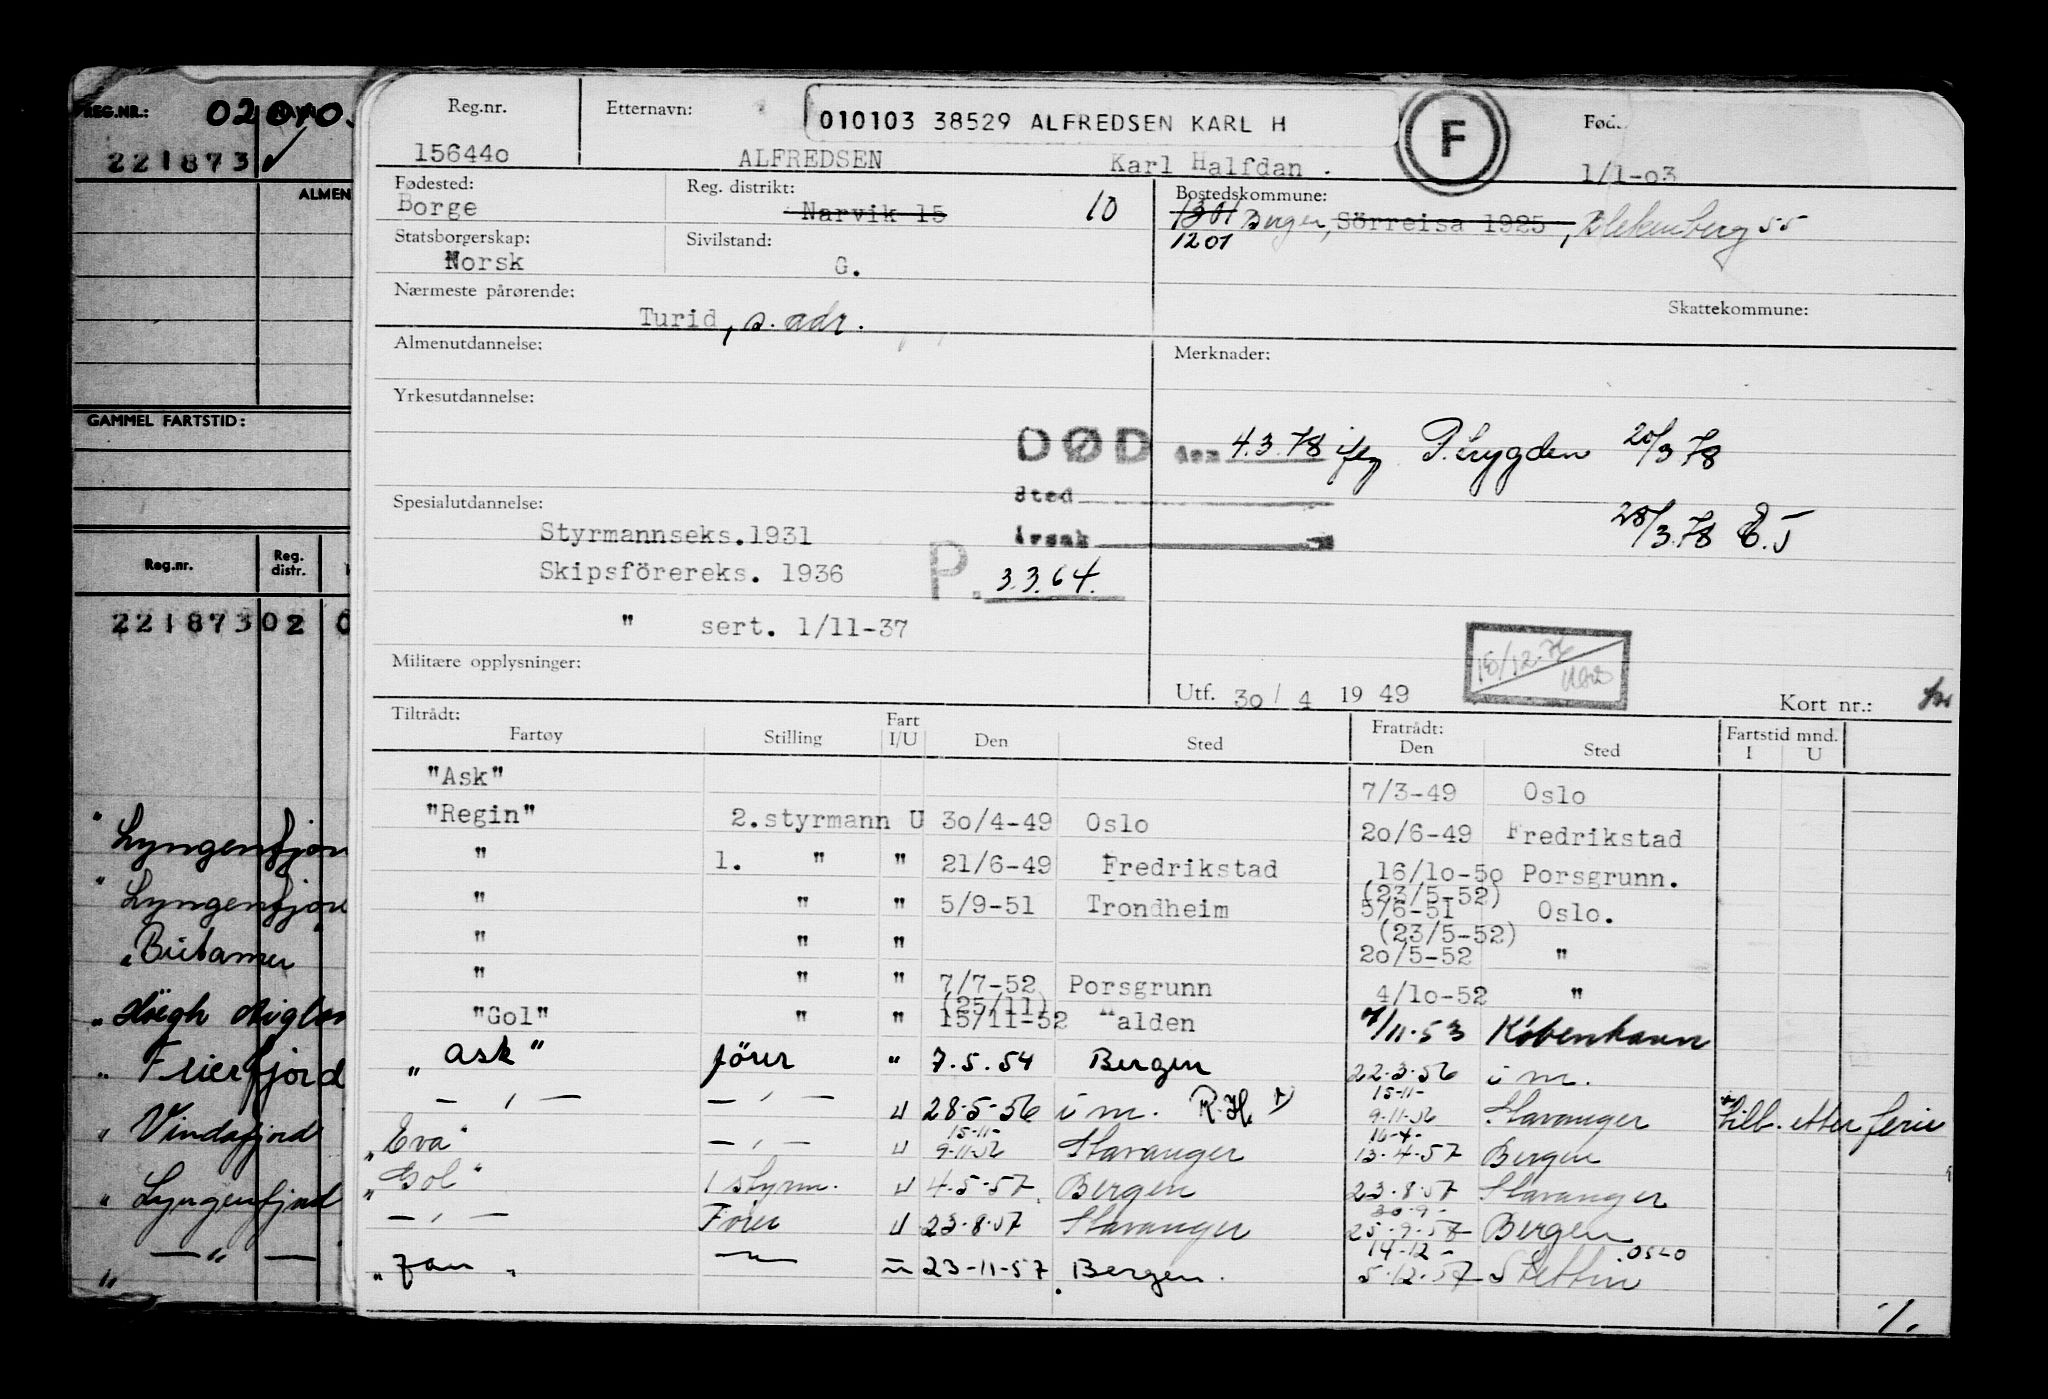 REG.NR.: 020103
221873 ✓
ALMEN
GAMMEL FARTSTID:
Reg.nr. Reg. distr.
221873 02 0
" Lyngenfjor
" Lyngenfjor
" Britamer
" Höegh
" Frierfjord
" Vindafjord
" Lyngenfjord
— " —
"
Reg.nr. Etternavn: 010103 38529 ALFREDSEN KARL H F Fød.
156440 ALFREDSEN Karl Halfdan . 1/1-03
Fødested: Reg. distrikt: Bostedskommune:
Borge Narvik 15 10 1301 Bergen, Sörreisa 1925, Blekenberg 55
Statsborgerskap: Sivilstand: 1201
Norsk G.
Nærmeste pårørende: Skattekommune:
Turid, s. adr.
Almenutdannelse: Merknader:
Yrkesutdannelse:
DØD den 4.3.78 iflg P. Trygden 20/3 78
Spesialutdannelse: Sted
28/3.78 E.J
Styrmannseks.1931 Årsak
Skipsförereks. 1936 P. 3.3.64.
" sert. 1/11-37
Militære opplysninger: 10/12.76
Utf. 30/4 1949 Kort nr.:
Tiltrådt: Fart Fratrådt: Fartstid mnd.
Fartøy Stilling I/U Den Sted Den Sted I U
"Ask" 7/3-49 Oslo
"Regin" 2.styrmann U 30/4-49 Oslo 20/6-49 Fredrikstad
" 1. " " 21/6-49 Fredrikstad 16/10-50 Porsgrunn.
(23/5-52)
" " " 5/9-51 Trondheim 5/6-51 Oslo.
(23/5-52)
" " " 20/5-52 "
" " " 7/7-52 Porsgrunn 4/10-52 "
(25/11)
"Gol" " " 15/11-52 "alden /11.53 København
"Ask" förer " 7.5.54 Bergen 22.3.56 i m.
15-11-
— " — — " — U 28-5-56 i m. R.H. 1) 9-11-56 Stavanger Tilb. etter ferie
15-11- 16-4-
"Eva" — " — U 9-11-56 Stavanger 13-4-57 Bergen
"Gol" 1 styrm. U 4-5-57. Bergen 23-8-57 Stavanger
30-9-
— " — Förer U 23-8-57 Stavanger 25-9-58 Bergen
14-12- OSLO
"Jan" — " — U 23-11-57 Bergen. 5-12-57 Stettin
·/.